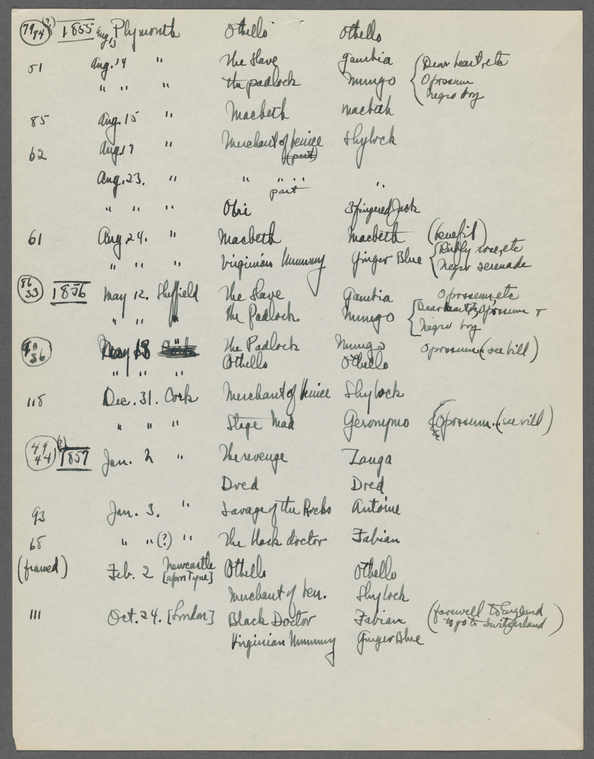 79/94 (?) 1855 Aug. 13 Plymouth Othello Othello
51 Aug. 14 " The Slave Gambia { Dear heart, etc
" " " The padlock Mungo Opossum
Negro boy
85 Aug. 15 " Macbeth Macbeth
62 Aug 17 " Merchant of Venice Shylock
(part)
Aug. 23. " " " " "
part
" " " Obi 3 fingered Jack
61 Aug 24. " Macbeth Macbeth (benefit)
" " " Virginian Mummy Ginger Blue { etc
Negro serenade
86/33 1856 May 12. Sheffield The Slave Gambia Opossum, etc
" " " The Padlock Mungo { Dear heart, Opossum +
Negro boy
90/36 May 18 " The Padlock Mungo Opossum (see bill)
" " " Othello Othello
118 Dec. 31. Cork Merchant of Venice Shylock
" " " Stage Mad Geronymo (Opossum. (see bill)
49/44 (?) 1857 Jan. 2 " The revenge Zanga
Dred Dred
93 Jan. 3. " Savage of the Rocks Antoine
68 " " (?) " The black doctor Fabian
(framed) Feb. 2 Newcastle [upon Tyne] Othello Othello
Merchant of Ven. Shylock
111 Oct. 24. [London] Black Doctor Fabian (farewell to England
to go to Switzerland)
Virginian Mummy Ginger Blue